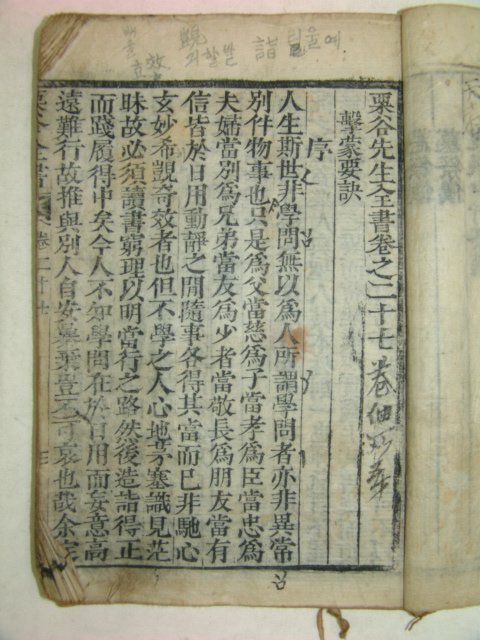 栗谷先生全書卷之二十七
擊蒙要訣
序
人生斯世非學問無以爲人所謂學問者亦非異常
別件物事也只是爲父當慈爲子當孝爲臣當忠爲
夫婦當別爲兄弟當友爲少者當敬長爲朋友當有
信皆於日用動靜之間隨事各得其當而已非馳心
玄妙希覬奇效者也但不學之人心地茅塞識見茫
昧故必須讀書窮理以明當行之路然後造詣得正
而踐履得中矣今人不知學問在於日用而妄意高
遠難行故推與別人自安暴棄豈不可哀也哉余定
栗谷全書 卷二十七
覬
바랄
詣